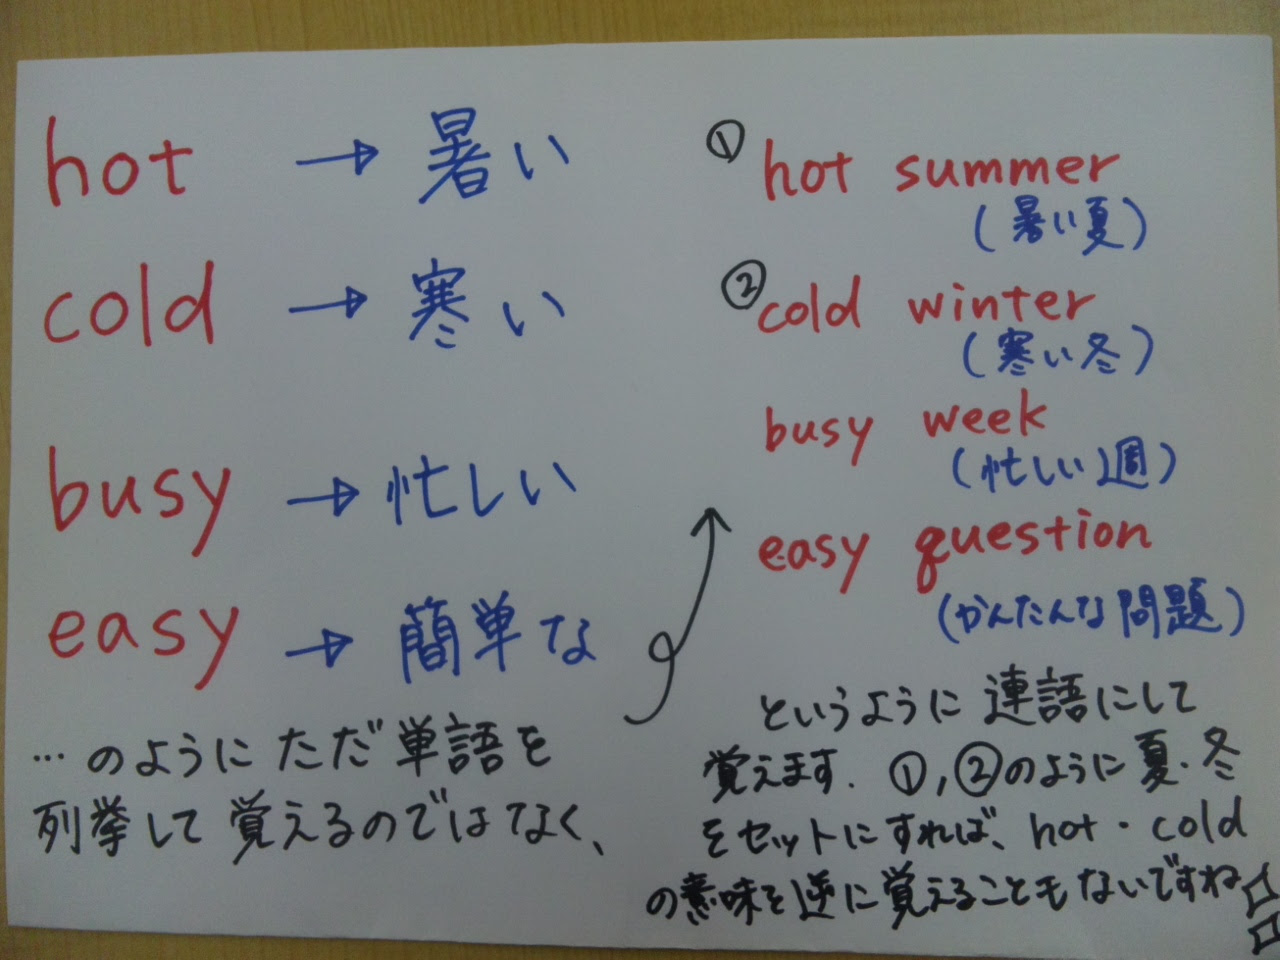 hot → 暑い
cold → 寒い
busy → 忙しい
easy → 簡単な
…のようにただ単語を
列挙して覚えるのではなく、
① hot summer
(暑い夏)
② cold winter
(寒い冬)
busy week
(忙しい週)
easy question
(かんたんな問題)
というように連語にして
覚えます. ①,②のように夏・冬
をセットにすれば、hot・cold
の意味を逆に覚えることもないですね